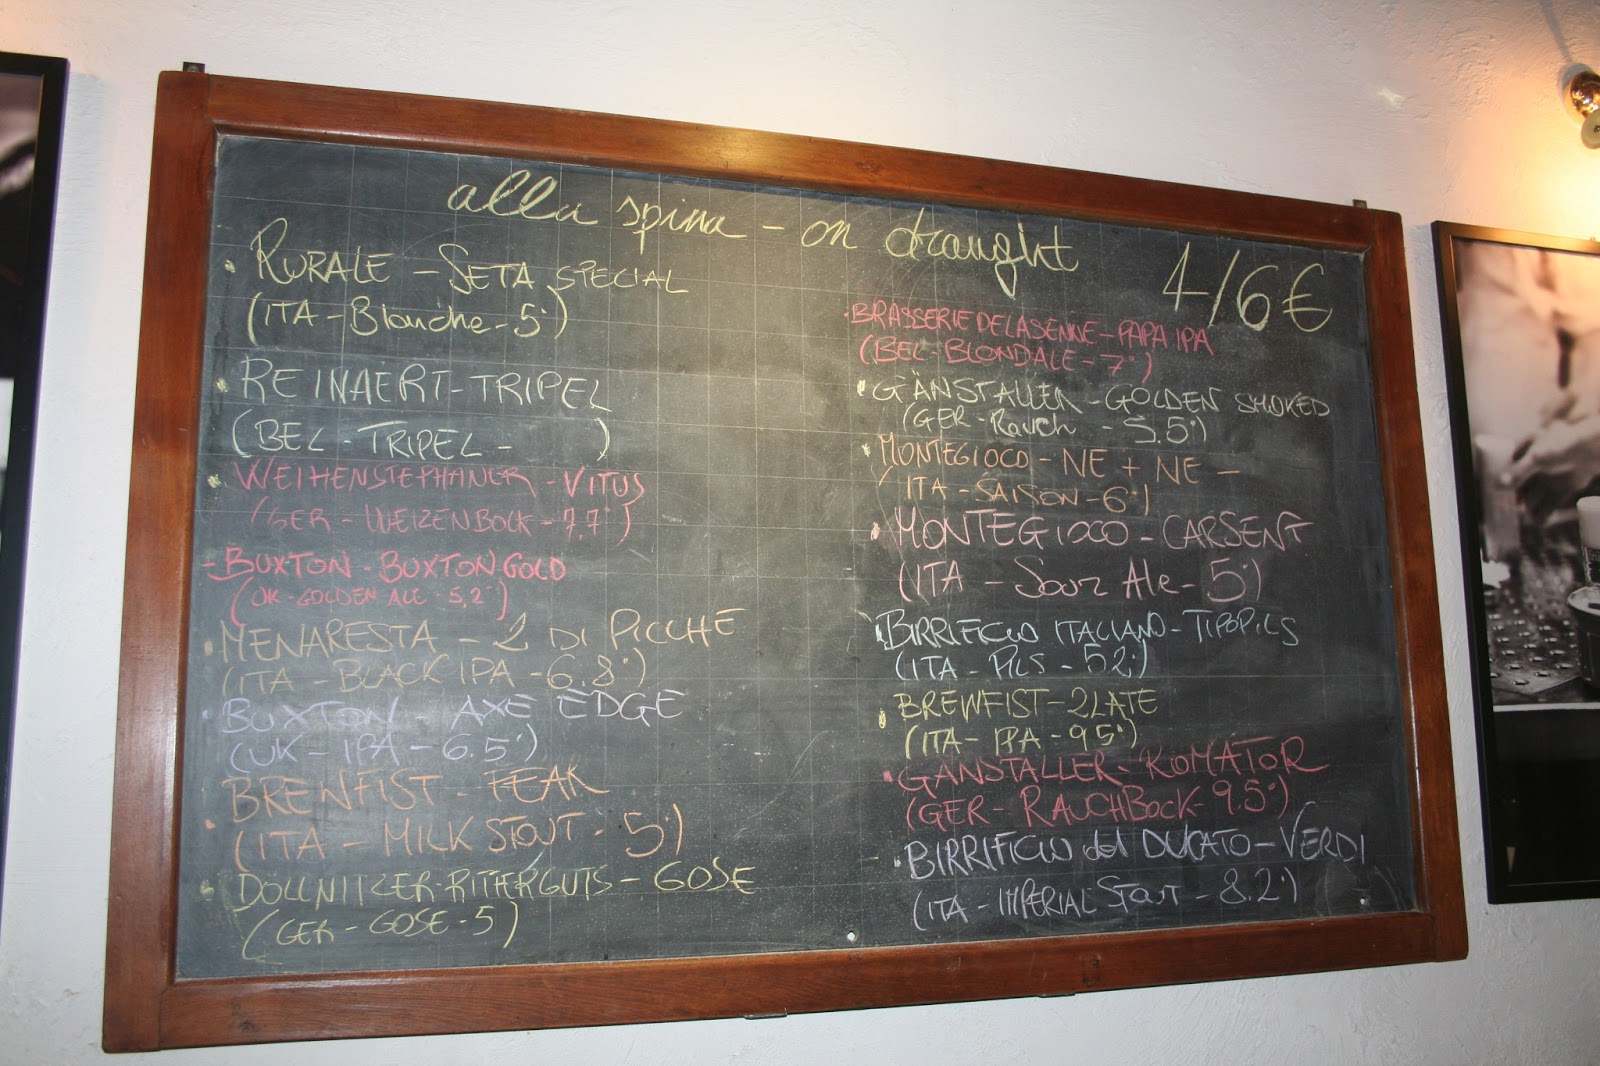 alla spina - on draught
4/6€
• RURALE - SETA SPECIAL
(ITA - Blanche - 5°)
• REINAERT - TRIPEL
(BEL - TRIPEL - )
• WEIHENSTEPHANER - VITUS
(GER - WEIZENBOCK - 7,7°)
- BUXTON - BUXTON GOLD
(UK - GOLDEN ALE - 5,2°)
• MENARESTA - 2 DI PICCHE
(ITA - BLACK IPA - 6.8°)
• BUXTON - AXE EDGE
(UK - IPA - 6.5°)
• BREWFIST - FEAR
(ITA - MILK STOUT - 5°)
• DÖLLNITZER RITTERGUTS - GOSE
(GER - GOSE - 5)
• BRASSERIE DE LA SENNE - PAPA IPA
(BEL - BLOND ALE - 7°)
• GÄNSTALLER - GOLDEN SMOKED
(GER - Rauch - 5.5°)
• MONTEGIOCO - NE + NE -
(ITA - SAISON - 6°)
• MONTEGIOCO - CARSENT
(ITA - Sour Ale - 5°)
• BIRRIFICIO ITALIANO - TIPOPILS
(ITA - PILS - 5.2°)
• BREWFIST - 2LATE
(ITA - IPA - 9.5°)
• GÄNSTALLER - KOMATOR
(GER - RAUCHBOCK - 9.5°)
• BIRRIFICIO del DUCATO - VERDI
(ITA - IMPERIAL STOUT - 8.2°)